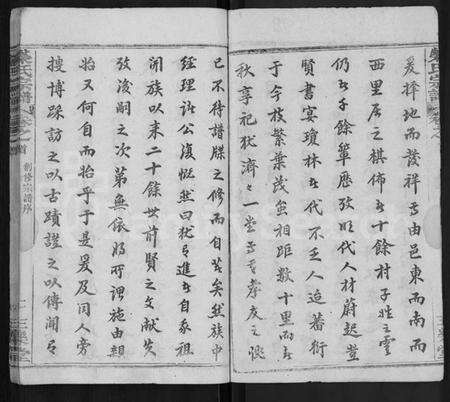 爰擇地而發祥焉由邑東而南而
西里居之棋佈者十餘村子姓之雲
仍者千餘輩歷攷明代人材蔚起登
賢書宴瓊林者代不乏人迨蕃衍
于今枝繁葉茂雖相距數十里而春
秋享祀猶濟濟一堂焉其孝友之
已不待譜牒之修而自著矣然族中
經理諸公復慨然曰猶有進者自家祖
開族以來二十餘世前賢之文獻失
攷後嗣之次第無依將所謂施由親
始又何自而始乎于是爰及同人旁
搜博採訪之以古蹟證之以傳聞
氏宗譜 卷之首 創修宗譜序 二 三槐堂